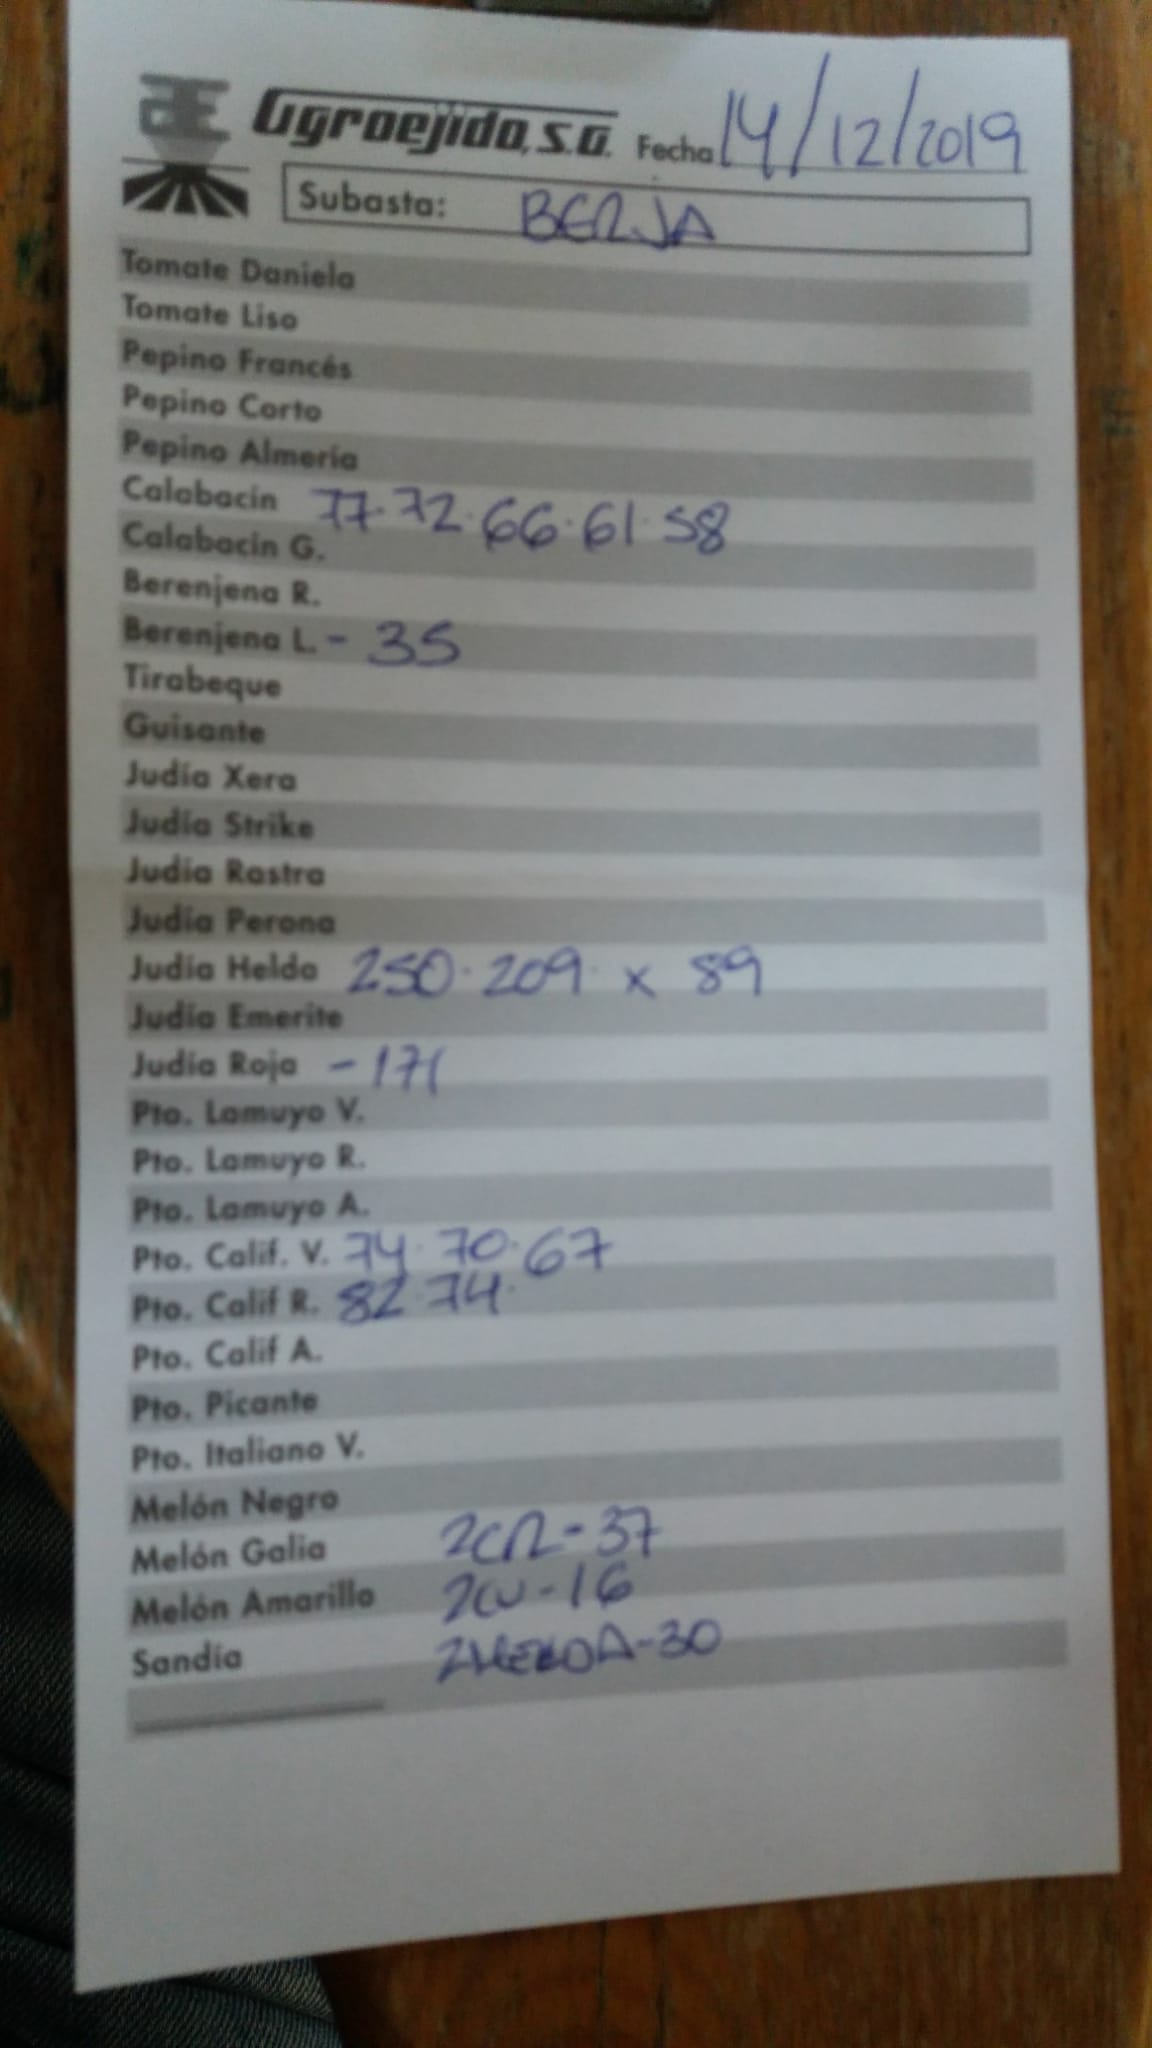 Agroejido, S.A. Fecha 14/12/2019
Subasta: BERJA
Tomate Daniela
Tomate Liso
Pepino Francés
Pepino Corto
Pepino Almería
Calabacín 77·72·66·61·58
Calabacín G.
Berenjena R.
Berenjena L. - 35
Tirabeque
Guisante
Judía Xera
Judía Strike
Judía Rastra
Judía Perona
Judía Helda 250·209· x 89
Judía Emerite
Judía Roja - 171
Pto. Lamuyo V.
Pto. Lamuyo R.
Pto. Lamuyo A.
Pto. Calif. V. 74·70·67
Pto. Calif R. 82·74·
Pto. Calif A.
Pto. Picante
Pto. Italiano V.
Melón Negro
Melón Galia 2CR-37
Melón Amarillo 2CV-16
Sandía -30